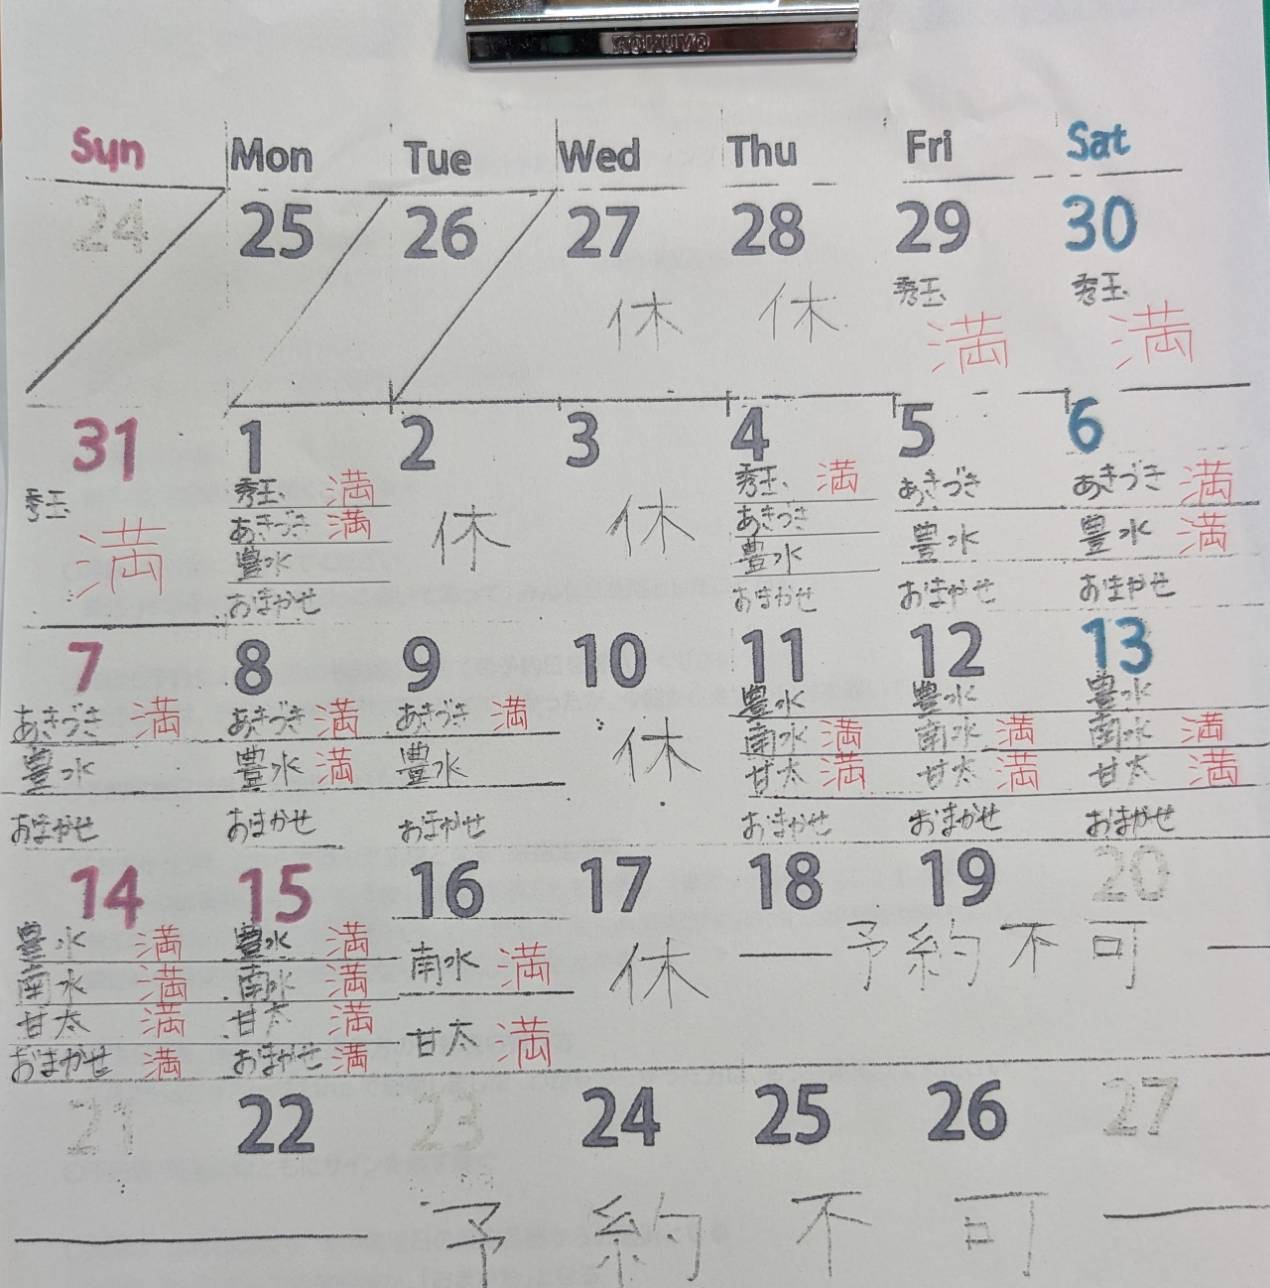 KOKUYO
Sun Mon Tue Wed Thu Fri Sat
24 25 26 27 28 29 30
休 休 秀玉 満 秀玉 満
31 1 2 3 4 5 6
秀玉 満
秀玉 満
あきづき 満
豊水
おまかせ
休
休
秀玉 満
あきづき
豊水
おまかせ
あきづき
豊水
おまかせ
あきづき 満
豊水 満
おまかせ
7 8 9 10 11 12 13
あきづき 満
豊水
おまかせ
あきづき 満
豊水 満
おまかせ
あきづき 満
豊水
おまかせ
休
豊水
南水 満
甘太 満
おまかせ
豊水
南水 満
甘太 満
おまかせ
豊水
南水 満
甘太 満
おまかせ
14 15 16 17 18 19 20
豊水 満
南水 満
甘太 満
おまかせ 満
豊水 満
南水 満
甘太 満
おまかせ 満
南水 満
甘太 満
休
予約不可
21 22 23 24 25 26 27
予約不可